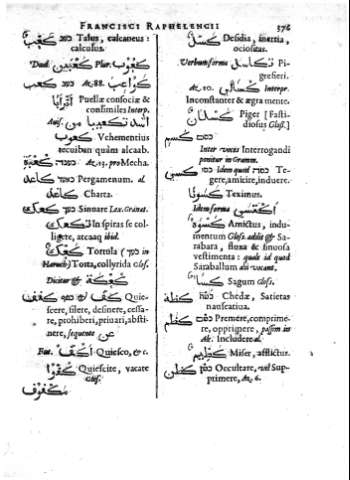 FRANCISCI RAPHELENGII 376
كعب כעב Talus, calcaneus:
calculus.
Dual. كعبين Plur. كعوب
כעב كواعب &c. 88.
أترابا Puellæ consociæ &
consimiles Interp.
Avis. أشد تكعيبا من
كعوب Vehementius
tecuibun quàm alcaab.
&c. 23. pro Mecha.
كاغد Pergamenum. al
كاغد Charta.
Sinuare Lex. Granat.
In spiras se col-
ligere, atcaaq ibid.
Tortula ( כעך in
Haruch) Torta, collyrida Glos.
Dicitur & كعكة
كفف & كف כפף Quie-
scere, silere, desinere, cessa-
re, prohiberi, priuari, absti-
nere, sequente عن
Fut. اكفف Quiesco, & c.
كفوا Quiescite, vacate
Glos.
مكفوف
كسل Desidia, inertia,
ociositas.
Verbum forma تكاسل Pi-
grescere.
&c. 10. كسالى Interpr.
Inconstanter & ægra mente.
كسلان Piger [Fasti-
diosus Glos.]
Inter voces Interrogandi
ponitur in Gramm.
Idem quod כסה Te-
gere, amicire, induere.
كسونا Teximus.
Idem forma
كسوة Amictus, indu-
mentum Glos. addit & Sa-
rabara, fluxa & sinuosa
vestimenta: quale id quod
Saraballum alii vocant.
كسا Sagum Glos.
كظة Chedæ, Satietas
nauseatiua.
كظم כטם Premere, comprime-
re, opprignere, passim in
Ab. Includere al.
كظيم Miser, afflictus.
Occultare, vel Sup-
primere, &c. 6.